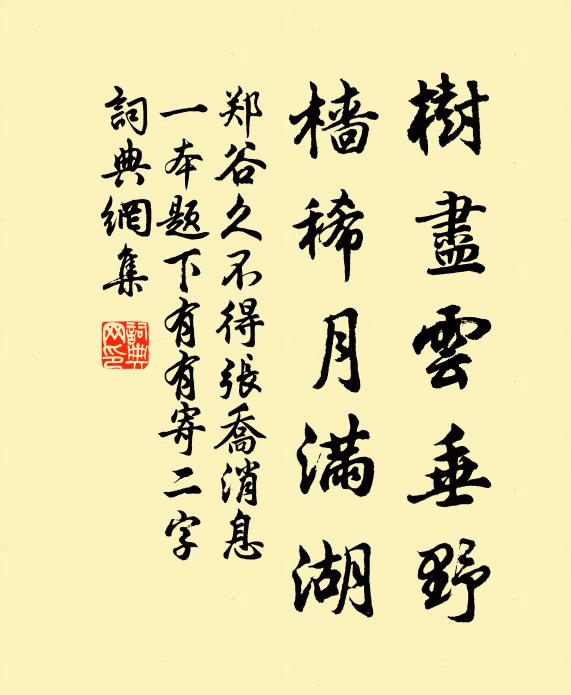 樹盡雲垂野
檣稀月滿湖
郑谷久不得張喬消息
一本题下有有寄二字
詞典網集
詞典网印